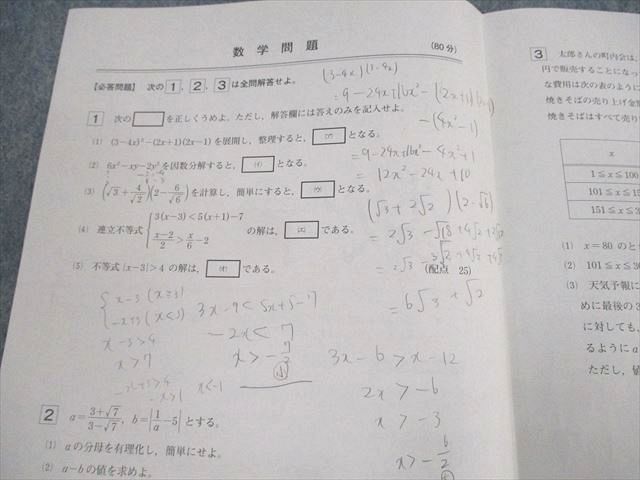 数学問題
(80分)
【必答問題】 次の 1, 2, 3 は全問解答せよ。
1 次の□を正しくうめよ。ただし，解答欄には答えのみを記入せよ。
(1) (3-4x)²-(2x+1)(2x-1)を展開し，整理すると，(ア)となる。
(2) 6x²-xy-2y²を因数分解すると，(イ)となる。
(3) (√3+4/√2)(2-6/√6)を計算し，簡単にすると，(ウ)となる。
(4) 連立不等式 {3(x-3)<5(x+1)-7
(x-2)/2>x/6-2 の解は，(エ)である。
(5) 不等式|x-3|>4 の解は，(オ)である。
(配点 25)
(3-4x)(3-4x)
= 9-24x+16x²-(2x+1)
-(4x²-1)
= 9-24x+16x²-4x²+1
= 12x²-24x+10
(√3+2√2)(2-√6)
= 2√3-√18+4√2
= 6√3+√2
x-3 (x≧3)
-x+3 (x<3)
x-3>4
x>7
x<-1
3x-9<5x+5-7
-2x<7
x>-7/2
3x-6>x-12
2x>-6
x>-3
x>-6/2
2 a=(3+√7)/(3-√7), b=|1/a-5|とする。
(1) aの分母を有理化し，簡単にせよ。
(2) a-bの値を求めよ。
3 太郎さんの町内会は，
円で販売することになっ
な費用は次の表のように
焼きそばの売り上げ金
焼きそばはすべて売り
x
1≦x≦100
101≦x≦15
151≦x≦3
(1) x=80 のと
(2) 101≦x≦3
(3) 天気予報に
めに最後の3
に対しても，
るようにa
ただし，値